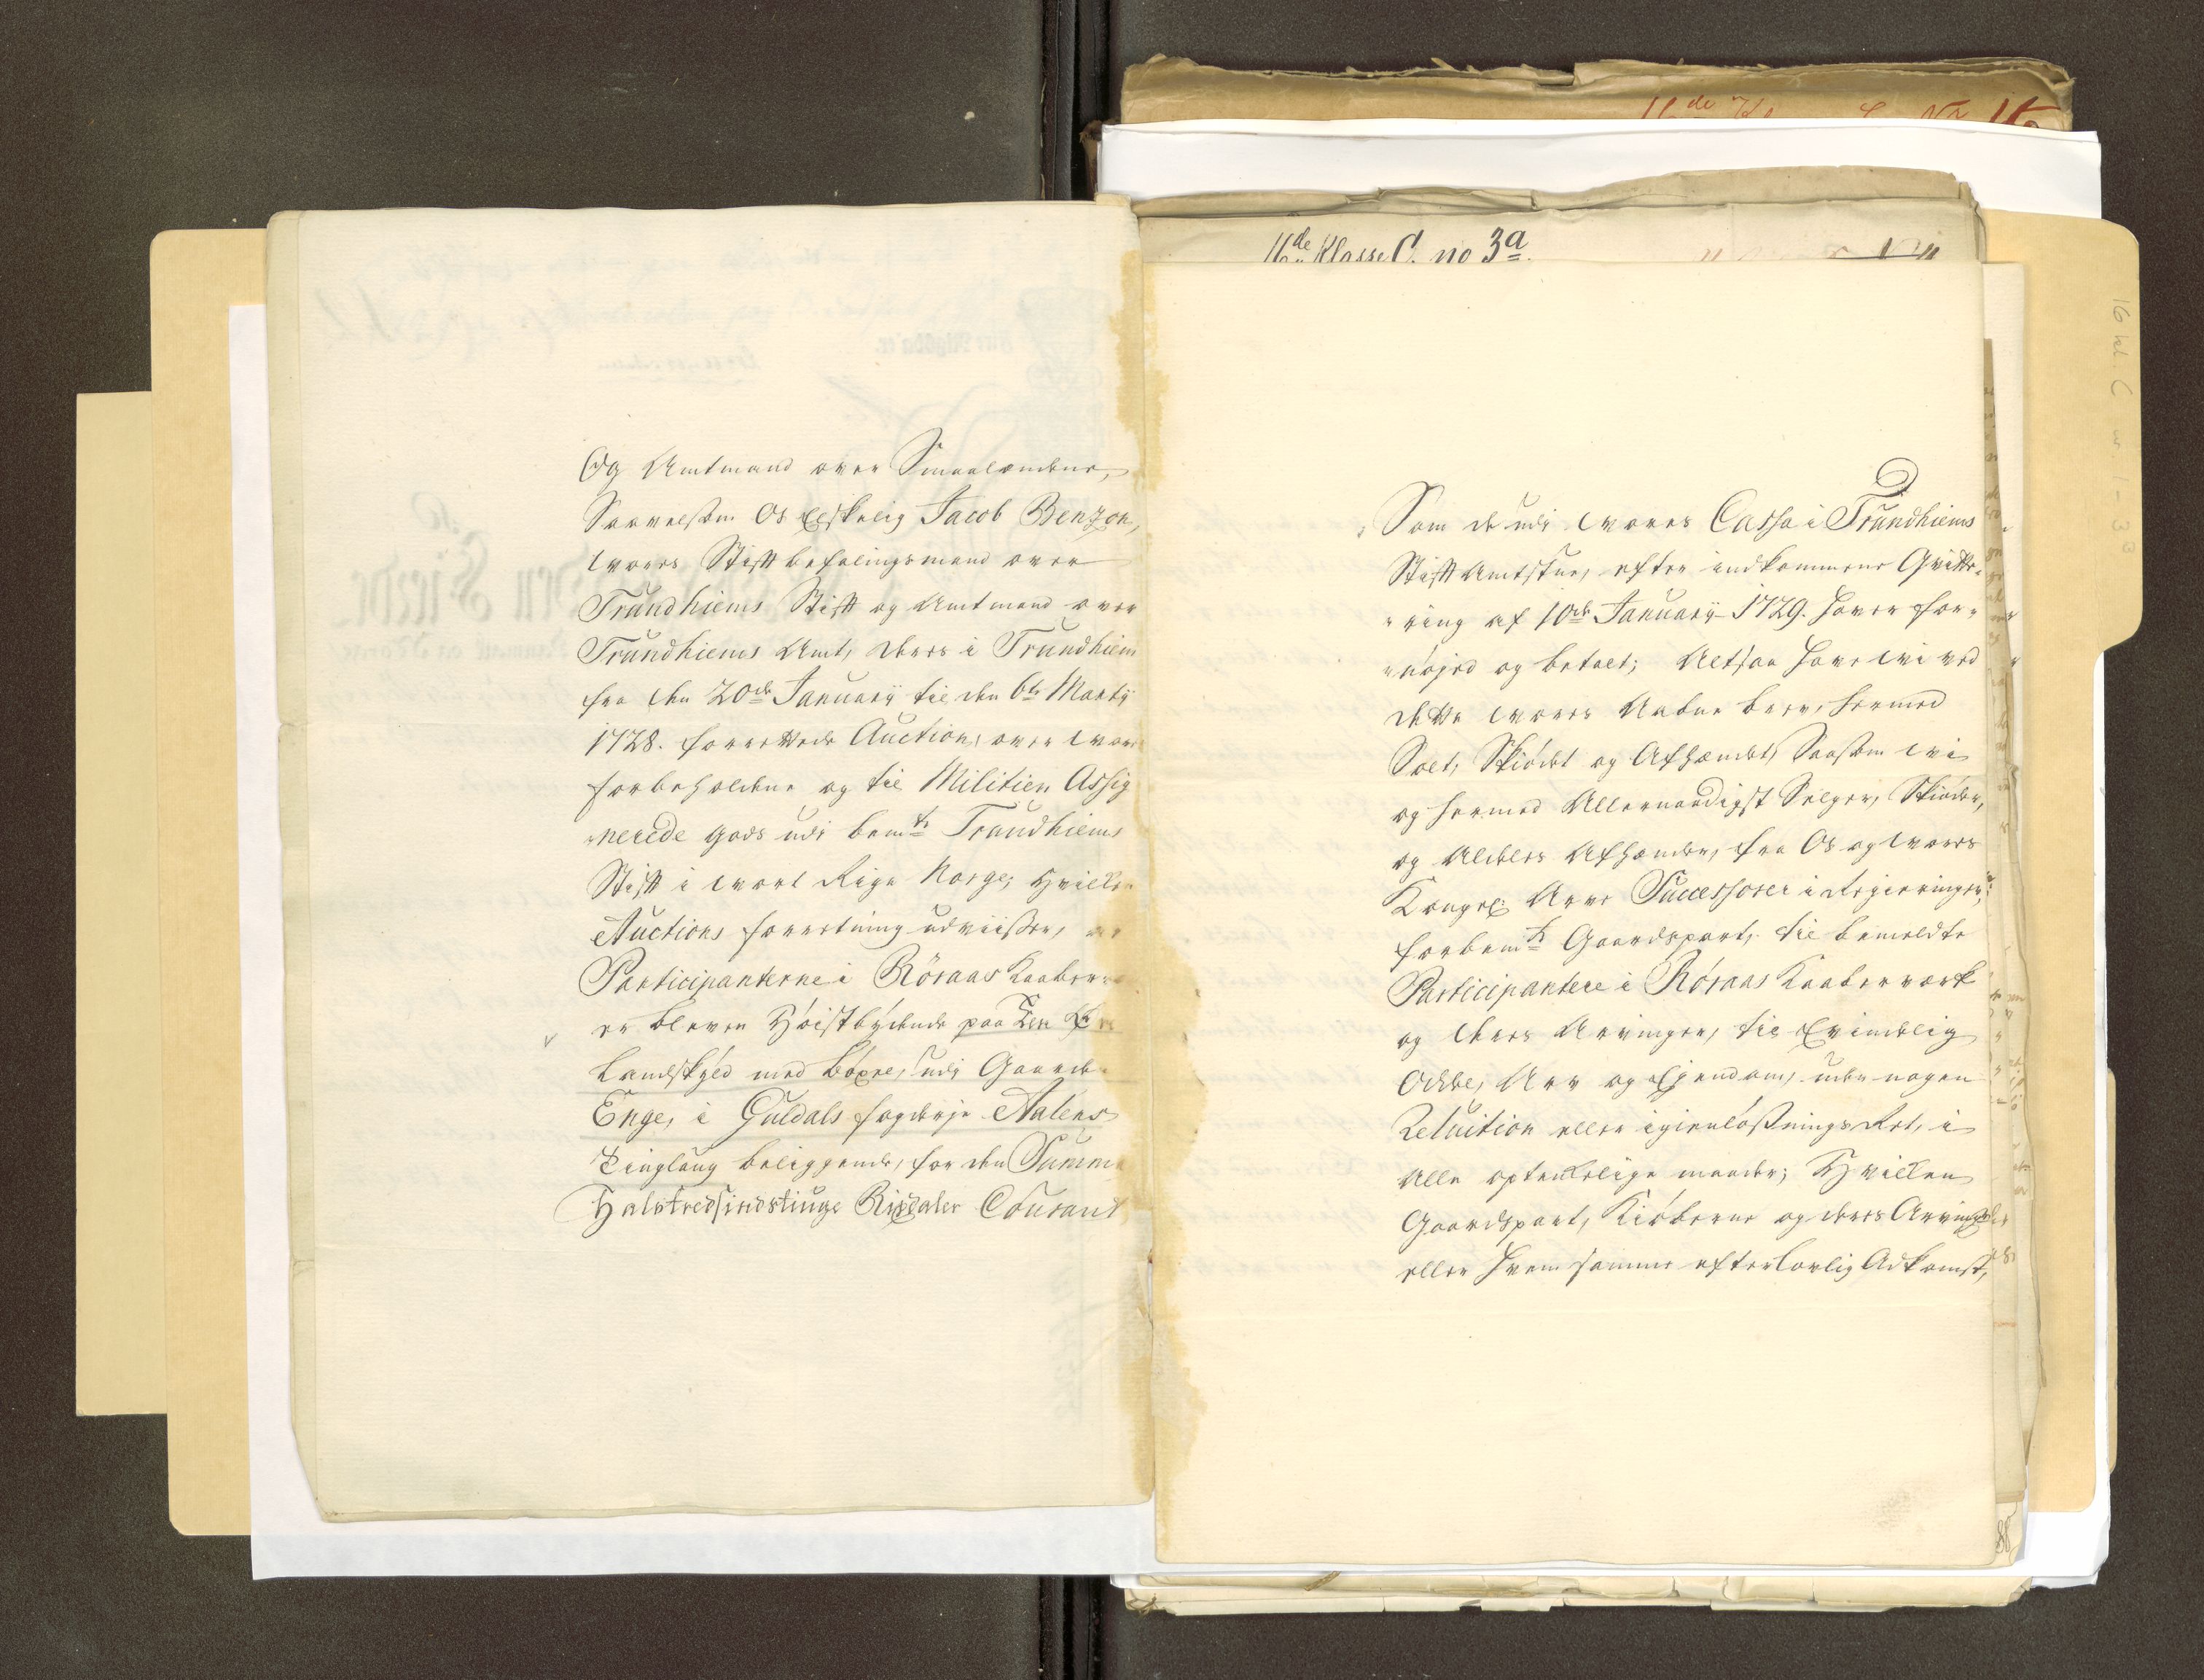 16de Klasse C. no 3a.
16 kl. C nr 1-33
Og Amtmand over Smaalændene,
Saavelsom Os Elskelig Jacob Benzon,
Vores Stiftbefalingsmand over
Trundhiems Stift og Amtmand over
Trundhiems Amt, deres i Trundhiem
fra den 20de January til den 6te Martij
1728. forrettede Auction, over Vore
forbeholdene og til Militien Assig
"nerede Gods udi bemte Trundhiems
Stift i Vort Rige Norge; Hvilken
Auctions forretning udviiser, at
Participanterne i Röraas Kaaber
er bleven Høistbydende paa
Landskyld med Böxel, udi Gaarden
Enge, i Guldals fogderje Aalens
Tinglaug beliggende, for den Summa
Halvtredsindstiuge Rixdaler Courant
Som de udi Vores Cassa i Trundhiems
Stift Amtstue, efter indkommene Qvitte-
"ring af 10de January 1729. haver for-
"nöjed og betalt; Altsaa have Vi ved
dette Vores Aabne brev, hermed
Solt, Skiödet og Afhændet, Saasom Vi
og hermed Allernaadigst Selger, Skiöder,
og Aldeles Afhænder, fra Os og Vores
Kongel: Arve Successorer i Regieringen,
forbemte Gaardspart, til bemeldte
Participantere i Röraas Kaaberværk
og deres Arvinger, til Evindelig
Odel, Arv og Ejendom, uden nogen
Reluition eller igienlösnings Ret, i
Alle optenkelige maader; Hvilken
Gaardspart, Kiöberne og deres Arvinger
eller hvem samme efter lovlig Adkomst,